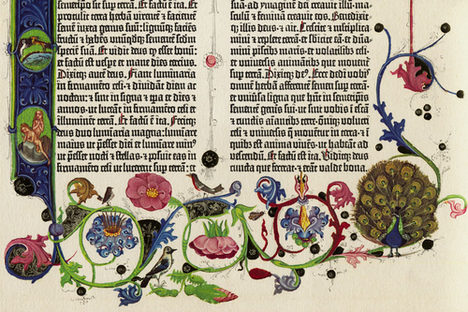 semetipso sit sup̄ terrā. Et factū ē ita. Et
protulit terra herbā virentē et faciente
semē iuxta genus suū: lignūq; faciens
fructū et habēs unūqdq; semente scd̄m
speciē suā. Et vidit deus q̄ esset bonū:
et factū est vespe et mane dies tercius.
Dixitq; autē deus. Fiant luminaria
in firmamēto celi · et dividāt diem ac
nocte: et sint in signa et tp̄a et dies et
annos: ut luceāt in firmamēto celi et
illuminēt terrā. Et factū ē ita. Fecitq;
deus duo luminaria magna: lumiare
ut p̄esset nocti et stellas · et posuit eas in
firmamēto celi ut lucerent sup̄ terrā: et
suā: ad ymaginē dei creavit illū: ma-
sculū et feminā creavit eos. Benedixit-
q; illis deus · et ait. Crescite et multiplica-
mini et replete terrā · et subicite eā: et dn̄a-
mini piscib; maris · et volatilib; celi:
et universis animātib; que movent̄
sup̄ terrā. Dixitq; de9. Ecce dedi vobis
omnē herbā afferentē semen sup̄ terrā:
et universa ligna que hn̄t in semetipis
sementē generis sui: ut sint vobis ī escā
et cunctis aīantib; terre · oīq; volucri
celi et universis q̄ movent̄ in terra · et ī
quib; est anima vivēs: ut habeāt ad
vescendū. Et factū est ita. Viditq; deus
cuncta que fecerat · et erāt valde bona.